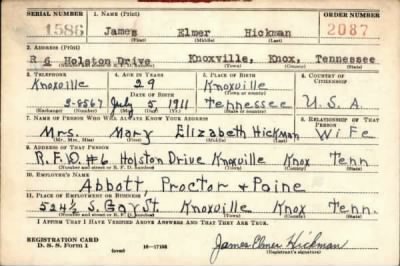 SERIAL NUMBER 1. NAME (Print) ORDER NUMBER
1586 James Elmer Hickman 2087
(First) (Middle) (Last)
2. ADDRESS (Print)
R 6 Holston Drive Knoxville, Knox, Tennessee
(Number and street or R. F. D. number) (Town) (County) (State)
3. TELEPHONE 4. AGE IN YEARS 5. PLACE OF BIRTH 6. COUNTRY OF CITIZENSHIP
Knoxville 29 Knoxville
DATE OF BIRTH (Town or county)
3-8567 July 5 1911 Tennessee U.S.A.
(Exchange) (Number) (Mo.) (Day) (Yr.) (State or country)
7. NAME OF PERSON WHO WILL ALWAYS KNOW YOUR ADDRESS 8. RELATIONSHIP OF THAT PERSON
Mrs. Mary Elizabeth Hickman Wife
(Mr., Mrs., Miss) (First) (Middle) (Last)
9. ADDRESS OF THAT PERSON
R.F.D. #6 Holston Drive Knoxville Knox Tenn
(Number and street or R. F. D. number) (Town) (County) (State)
10. EMPLOYER'S NAME
Abbott, Proctor + Paine
11. PLACE OF EMPLOYMENT OR BUSINESS
524½ S. Gay St. Knoxville Knox Tenn.
(Number and street or R. F. D. number) (Town) (County) (State)
I AFFIRM THAT I HAVE VERIFIED ABOVE ANSWERS AND THAT THEY ARE TRUE.
REGISTRATION CARD
D. S. S. Form 1 16-17105 James Elmer Hickman
(Registrant's signature)